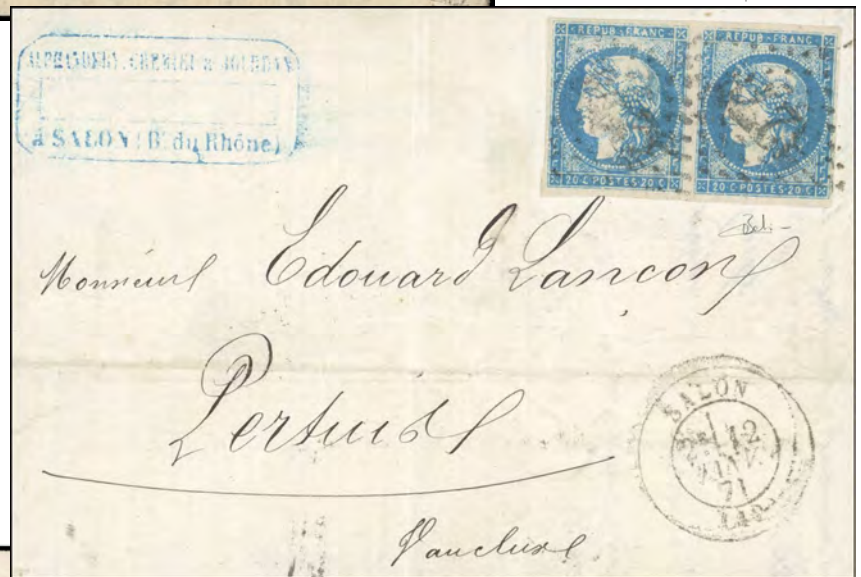 ALPHANDERY, CREMIEU & JOURDAN
à SALON (B. du Rhône)
REPUB. FRANC.
20 C POSTES 20 C
REPUB. FRANC.
20 C POSTES 20 C
Monsieur Edouard Lançon
Pertuis
Vaucluse
SALON
12
JANV.
71